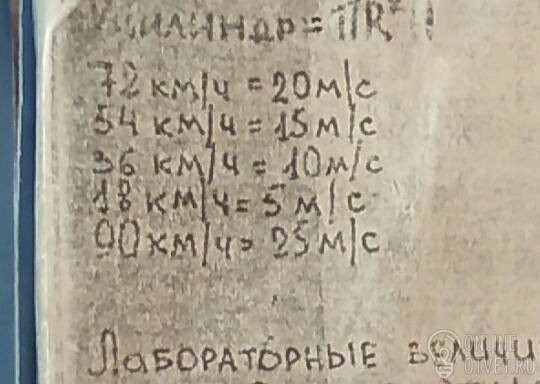 цилиндр = ПR²H
72 км/ч = 20 м/с
54 км/ч = 15 м/с
36 км/ч = 10 м/с
18 км/ч = 5 м/с
90 км/ч = 25 м/с
ЛАБОРАТОРНЫЕ ВЕЛИЧИ